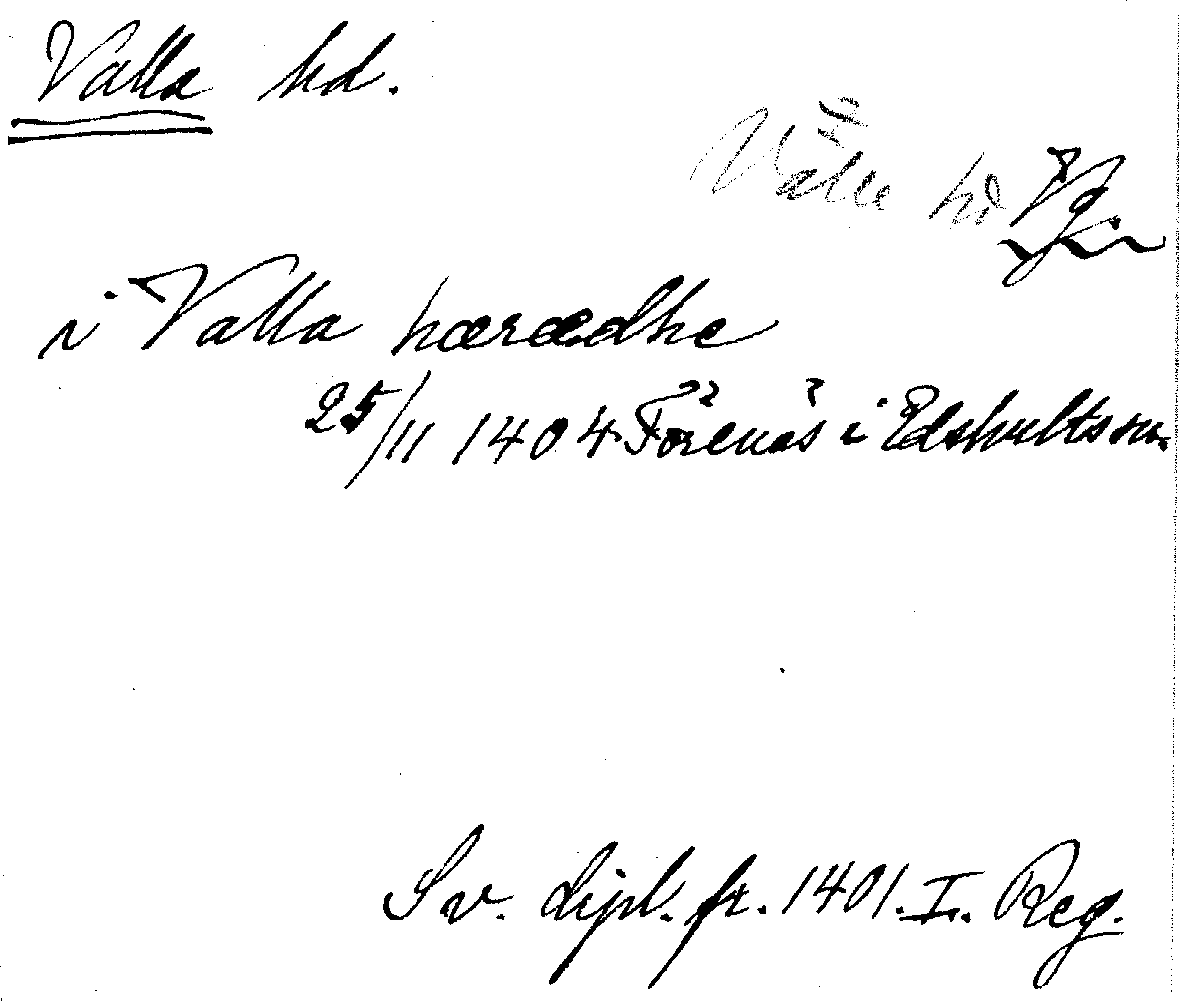 Valla hd.
Valle hd Vg.
i Valla hæradhe
25/11 1404 Förenäs i Edshults sn.
Sv. dipl. fr. 1401. I. Reg.